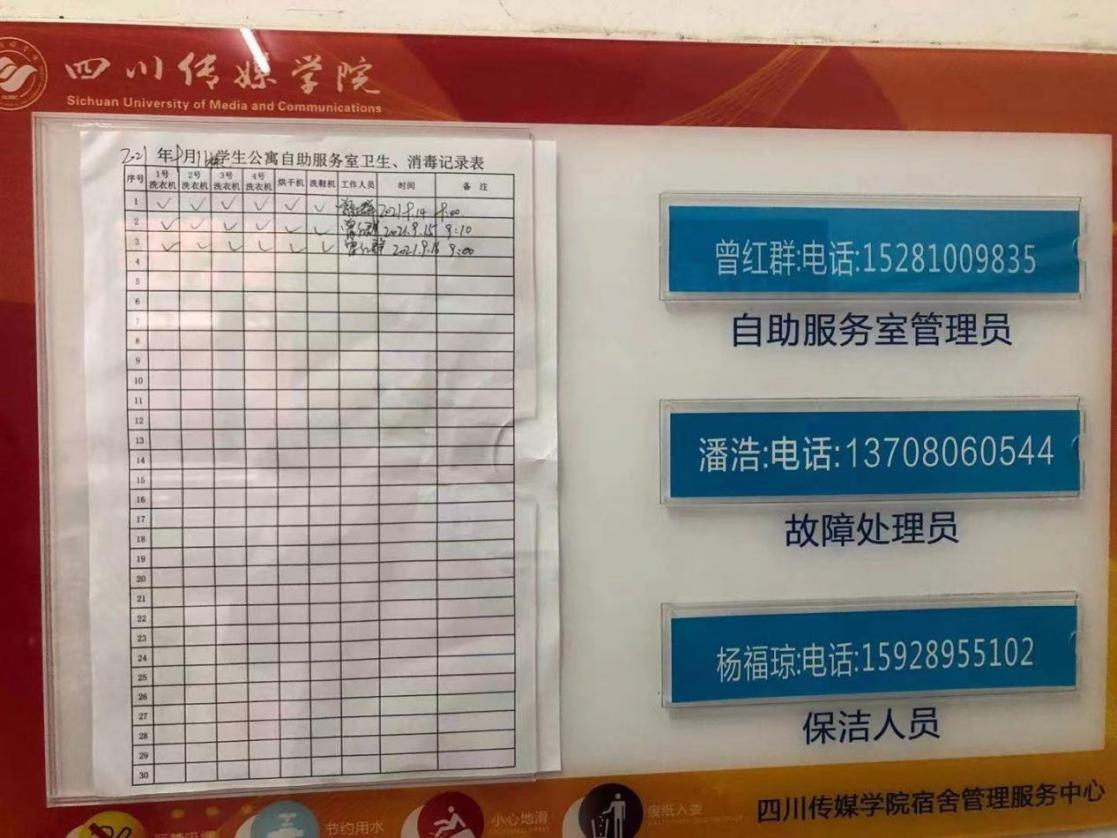 四川传媒学院
Sichuan University of Media and Communications
2021年9月 学生公寓自助服务室卫生、消毒记录表
序号 1号洗衣机 2号洗衣机 3号洗衣机 4号洗衣机 烘干机 洗鞋机 工作人员 时间 备注
1 ✓ ✓ ✓ ✓ ✓ ✓ 曾红群 2021.9.14 9:00
2 ✓ ✓ ✓ ✓ ✓ ✓ 曾红群 2021.9.15 9:10
3 ✓ ✓ ✓ ✓ ✓ ✓ 曾红群 2021.9.16 9:00
4
5
6
7
8
9
10
11
12
13
14
15
16
17
18
19
20
21
22
23
24
25
26
27
28
29
30
曾红群:电话:15281009835
自助服务室管理员
潘浩:电话:13708060544
故障处理员
杨福琼:电话:15928955102
保洁人员
节约用水
小心地滑
废纸入篓
四川传媒学院宿舍管理服务中心